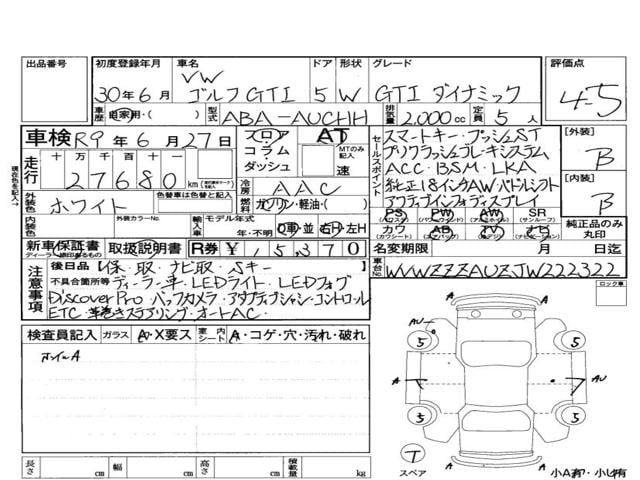 出品番号 初度登録年月 車名 ドア 形状 グレード 評価点
VW
30年6月 ゴルフGTI 5 W GTI ダイナミック 4.5
車歴 自家用・( ) 型式 ABA-AUCHH 排気量 2,000cc 定員 5人
車検 R9年6月27日 フロア AT セールスポイント スマートキー・プッシュST [外装]
コラム MTのみ記入 プリクラッシュブレーキシステム B
走行 十万 万 千 百 十 一 ダッシュ 速 ACC・BSM・LKA
27680km 冷房 AAC 純正18インチAW・パドルシフト [内装]
外装色 ホワイト 色替車は色替と記入 燃料 ガソリン・軽油・( ) アクティブインフォディスプレイ B
内装色 外装カラーNo. 輸入車 モデル年式 年・不明 D車・並 右H・左H
PS (パワステ) PW (パワーウィンドウ) AW (アルミホイール) SR (サンルーフ)
カワ (カワシート) AB (エアバッグ) TV (ナビ) ナビ 純正品のみ丸印
新車保証書 取扱説明書 R券 ¥15370 名変期限 月 日迄
ディーラー捺印あるもの
注意事項 後日品 保・取・ナビ取・Sキー 車台No. WVWZZZAUZJW222322
不具合箇所等 ディーラー車・LEDライト・LEDフォグ ロック車
Discover Pro・バックカメラ・アダプティブシャシーコントロール
ETC・革巻きステアリング・オートAC・
検査員記入 ガラス A・X要ス 室内 シート A・コゲ・穴・汚れ・破れ
ホイルA
A
AU
5 5
A AU
5 5
T
スペア
A A
小A有・小凹有
長さ cm 幅 cm 高さ cm 積載量 kg
現在色を記入→